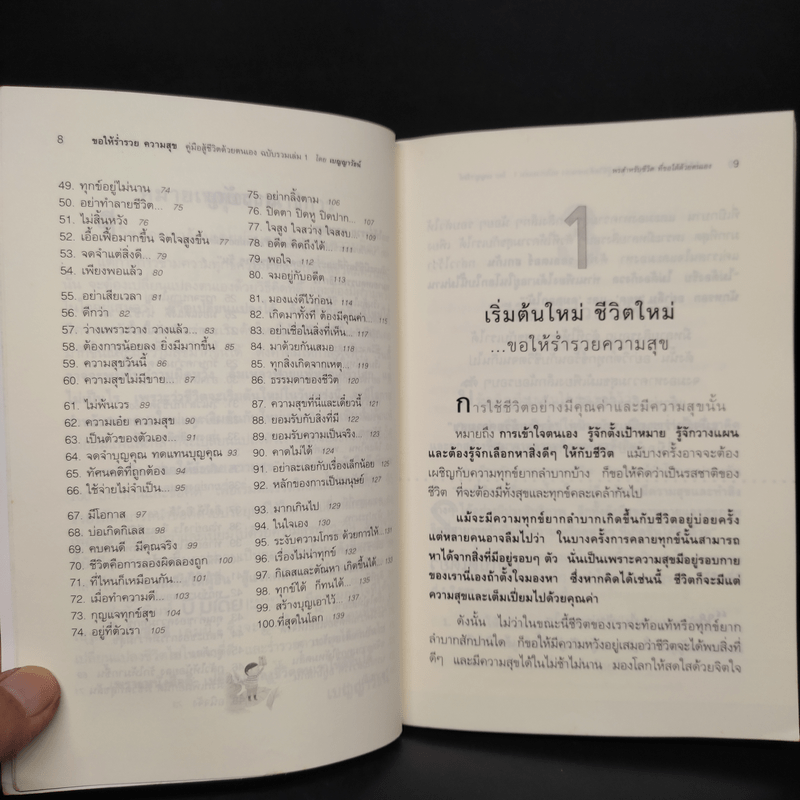 8 ขอให้ร่ำรวย ความสุข คู่มือสู้ชีวิตด้วยตนเอง ฉบับรวมเล่ม 1 โดย เบญญารัตน์
49. ทุกข์อยู่ไม่นาน 74
50. อย่าทำลายชีวิต... 75
51. ไม่สิ้นหวัง 76
52. เอื้อเฟื้อมากขึ้น จิตใจสูงขึ้น 77
53. จดจำแต่สิ่งดี... 79
54. เพียงพอแล้ว 80
55. อย่าเสียเวลา 81
56. ดีกว่า 82
57. ว่างเพราะวาง วางแล้ว... 83
58. ต้องการน้อยลง ยิ่งมีมากขึ้น 85
59. ความสุขวันนี้ 86
60. ความสุขไม่มีขาย... 87
61. ไม่พ้นเวร 89
62. ความเอ๋ย ความสุข 90
63. เป็นตัวของตัวเอง... 91
64. จดจำบุญคุณ ทดแทนบุญคุณ 93
65. ทัศนคติที่ถูกต้อง 94
66. ใช้จ่ายไม่จำเป็น... 95
67. มีโอกาส 97
68. บ่อเกิดกิเลส 98
69. คบคนดี มีคุณจริง 99
70. ชีวิตคือการลองผิดลองถูก 100
71. ที่ไหนก็เหมือนกัน... 101
72. เมื่อทำความดี... 103
73. กุญแจทุกข์สุข 104
74. อยู่ที่ตัวเรา 105
75. อย่ากลิ้งตาม 106
76. ปิดตา ปิดหู ปิดปาก... 107
77. ใจสูง ใจสว่าง ใจสงบ 109
78. อดีต คิดถึงได้... 111
79. พอใจ 112
80. จมอยู่กับอดีต 113
81. มองแง่ดีไว้ก่อน 114
82. เกิดมาทั้งที ต้องมีคุณค่า... 116
83. อย่าเชื่อในสิ่งที่เห็น... 117
84. มาด้วยกันเสมอ 118
85. ทุกสิ่งเกิดจากเหตุ... 119
86. ธรรมดาของชีวิต 120
87. ความสุขที่นี่และเดี๋ยวนี้ 121
88. ยอมรับกับสิ่งที่มี 122
89. ยอมรับความเป็นจริง... 123
90. คาดไม่ได้ 124
91. อย่าละเลยกับเรื่องเล็กน้อย
92. หลักของการเป็นมนุษย์ 127
93. มากเกินไป 129
94. ในใจเอง 130
95. ระงับความโกรธ ด้วยการให้...
96. เรื่องไม่น่าทุกข์
97. กิเลสและตัณหา เกิดขึ้นได้...
98. ทุกข์ได้ ก็ทนได้ 135
99. สร้างบุญเอาไว้
100. ที่สุดในโลก 139
9
1
เริ่มต้นใหม่ ชีวิตใหม่
...ขอให้ร่ำรวยความสุข
การใช้ชีวิตอย่างมีคุณค่าและมีความสุขนั้น
หมายถึง การเข้าใจตนเอง รู้จักตั้งเป้าหมาย รู้จักวางแผน
และต้องรู้จักเลือกหาสิ่งดีๆ ให้กับชีวิต แม้บางครั้งอาจจะต้อง
เผชิญกับความทุกข์ยากลำบากบ้าง ก็ขอให้คิดว่าเป็นรสชาติของ
ชีวิต ที่จะต้องมีทั้งสุขและทุกข์คละเคล้ากันไป
แม้จะมีความทุกข์ยากลำบากเกิดขึ้นกับชีวิตอยู่บ่อยครั้ง
แต่หลายคนอาจลืมไปว่า ในบางครั้งการคลายทุกข์นั้นสามารถ
หาได้จากสิ่งที่มีอยู่รอบๆ ตัว นั่นเป็นเพราะความสุขมีอยู่รอบกาย
ของเรานี่เองถ้าตั้งใจมองหา ซึ่งหากคิดได้เช่นนี้ ชีวิตก็จะมีแต่
ความสุขและเต็มเปี่ยมไปด้วยคุณค่า
ดังนั้น ไม่ว่าในขณะนี้ชีวิตของเราจะท้อแท้หรือทุกข์ยาก
ลำบากสักปานใด ก็ขอให้มีความหวังอยู่เสมอว่าชีวิตจะได้พบสิ่งที่
ดีๆ และมีความสุขได้ในไม่ช้าไม่นาน มองโลกให้สดใสด้วยจิตใจ